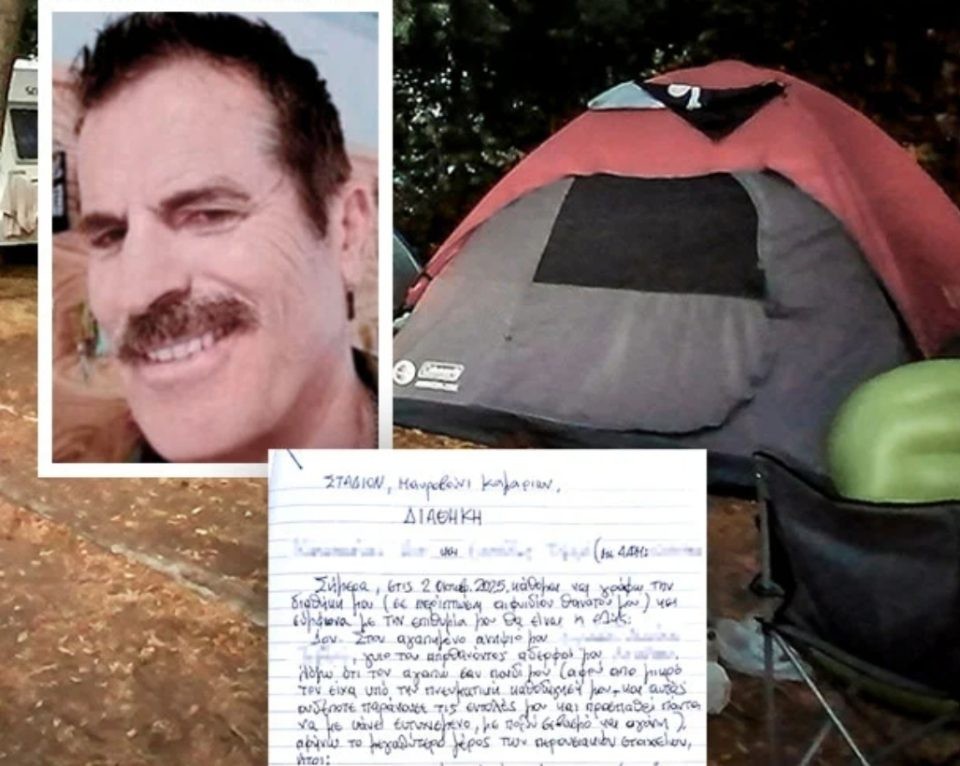 Coleman
ΣΤΑΔΙΟΝ, Μαυροβούνι Καμαριων,
ΔΙΑΘΗΚΗ
και (εκ ΑΔΗ:
Σήμερα, στις 2 Οκτωβ. 2025, κάθομαι και γράφω την
διαθήκη μου (σε περίπτωση αιφνιδίου θανάτου μου) και
σύμφωνα με την επιθυμία μου θα είναι η εξής:
1ον. Στον αγαπημένο ανηψιο μου
, γυιο του αποθανόντος αδερφού μου
λόγω ότι τον αγαπώ σαν παιδί μου (αφού απο μικρό
τον είχα υπό την πνευματική καθοδήγησή μου, και αυτός
ουδέποτε παράκουσε τις εντολές μου και προσπαθεί πάντα
να με κάνει ευτυχισμένο, με πολύ σεβασμό και αγάπη),
αφήνω το μεγαλύτερο μέρος των περουσιακών στοιχείων,
ήτοι: